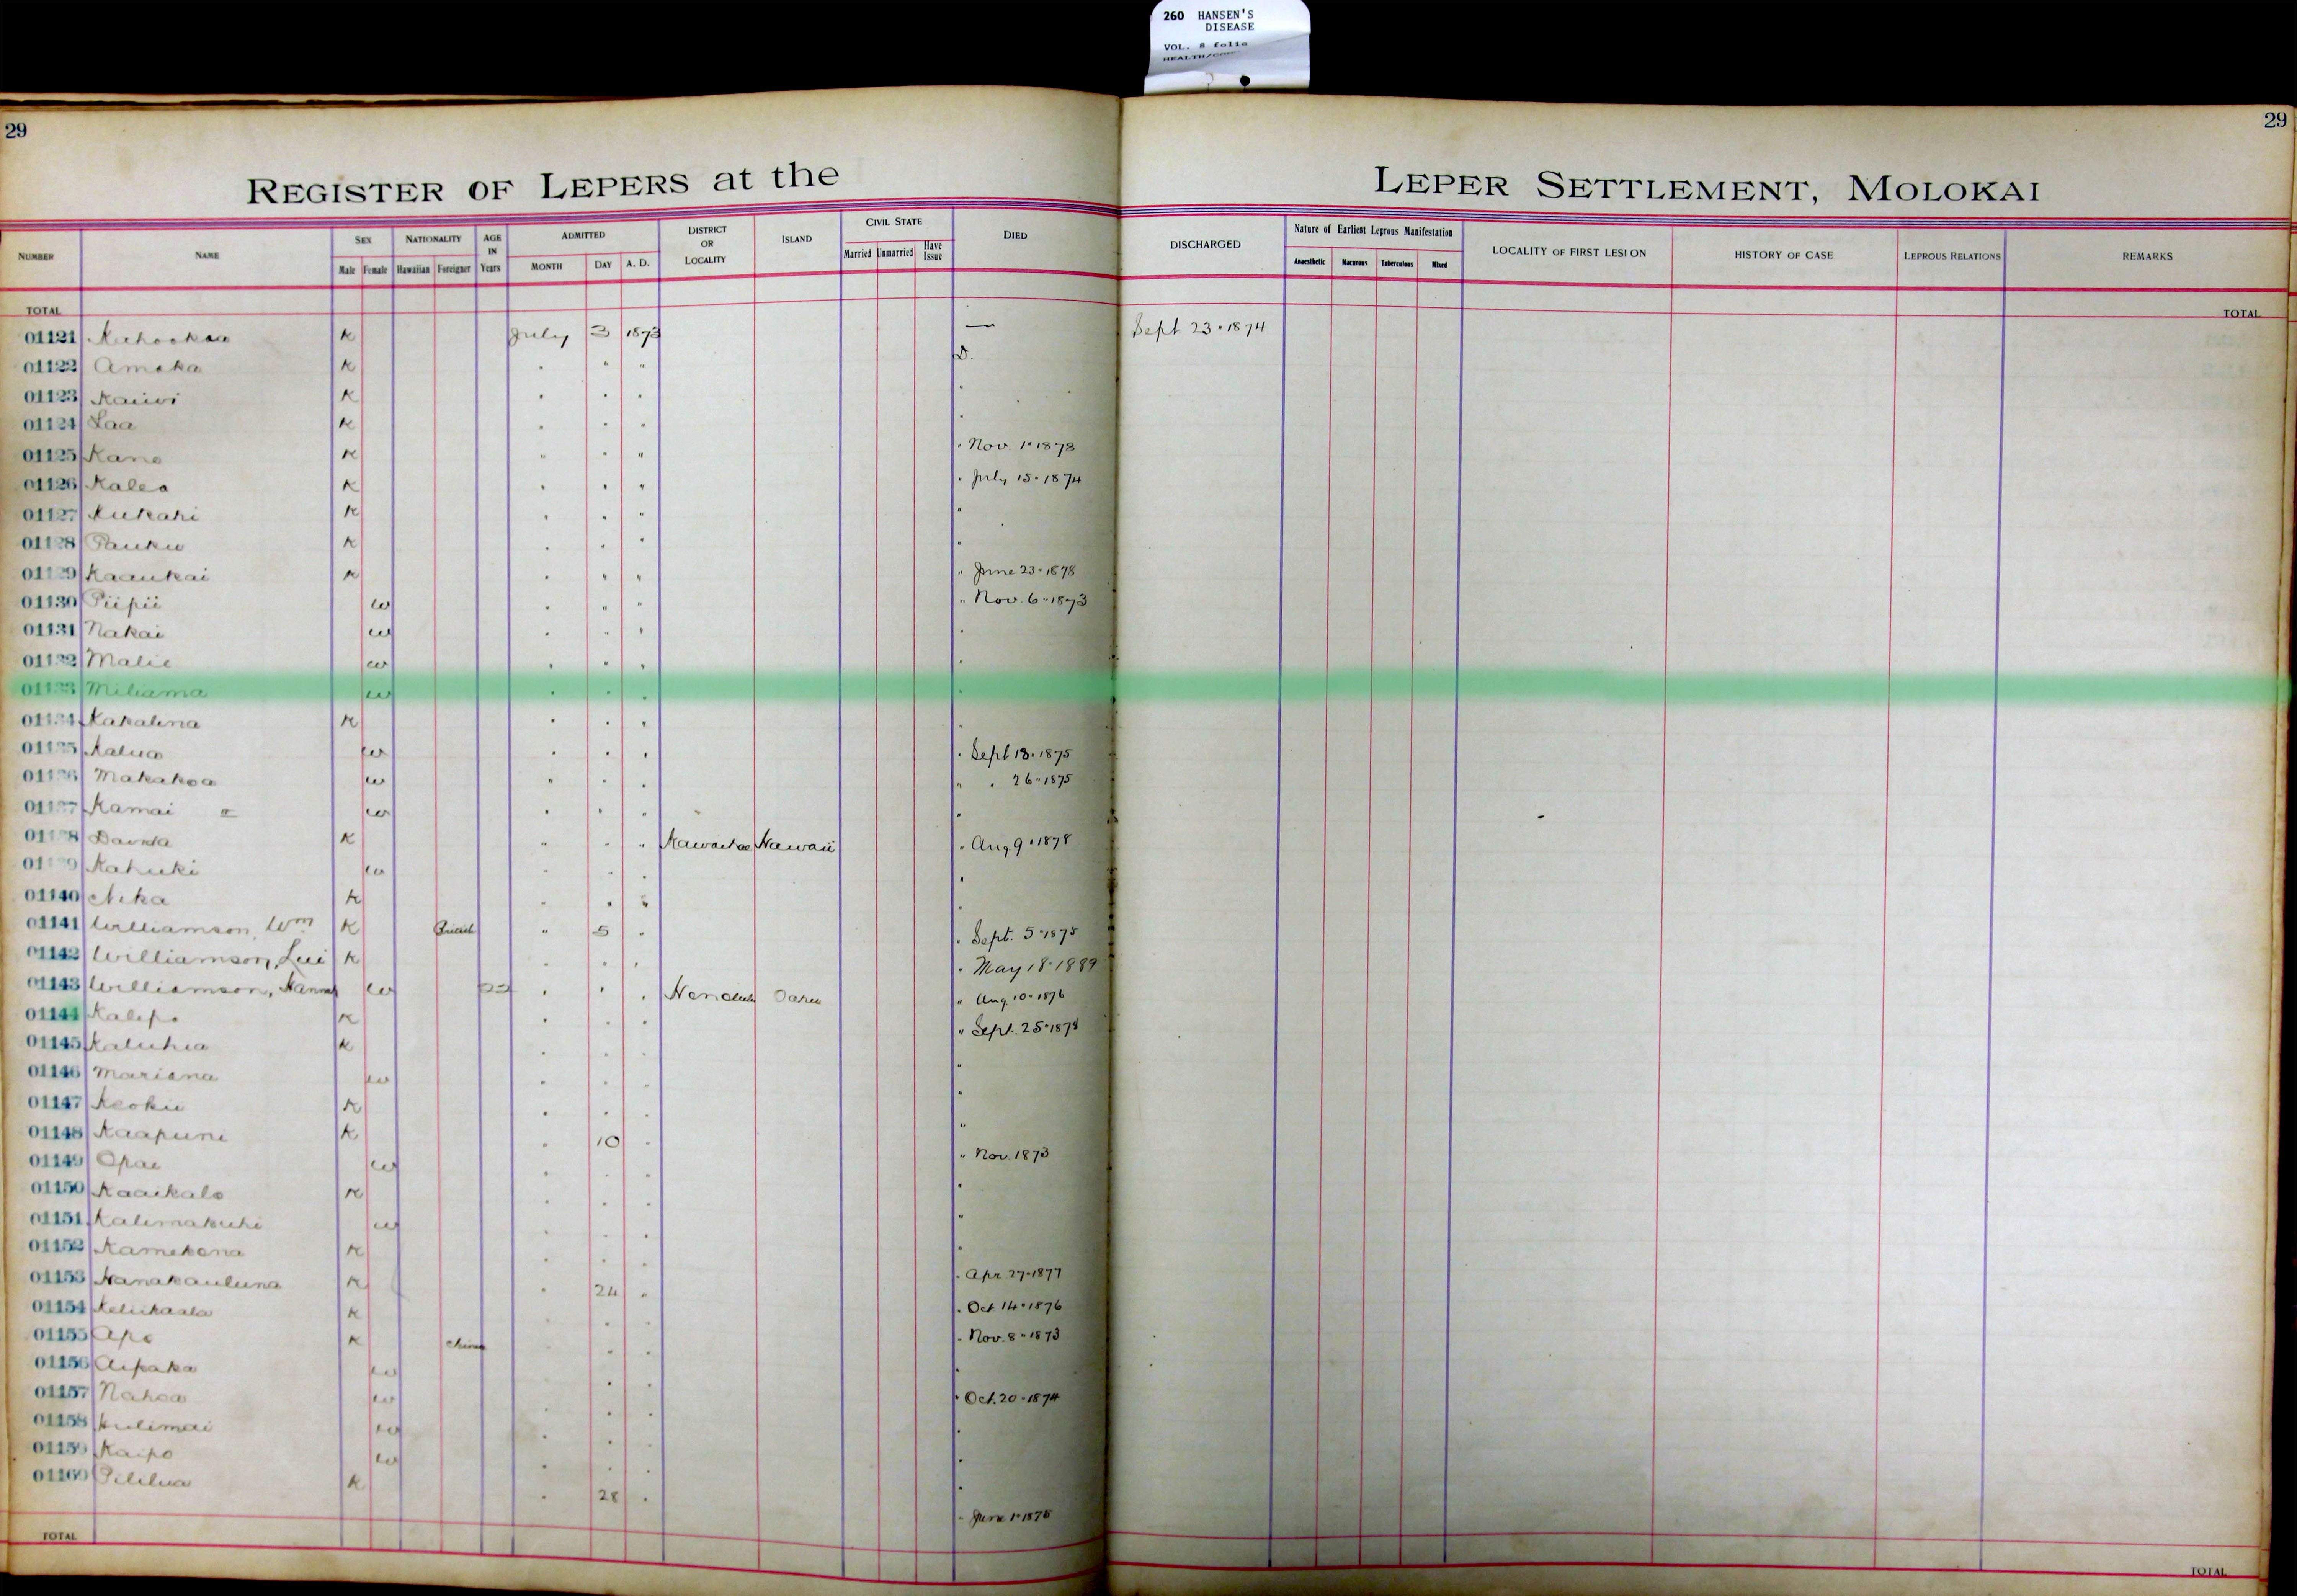 260 HANSEN'S
DISEASE
VOL. 8 folio
29
29
REGISTER OF LEPERS at the LEPER SETTLEMENT, MOLOKAI
NUMBER NAME SEX NATIONALITY AGE IN Years ADMITTED DISTRICT OR LOCALITY ISLAND CIVIL STATE DIED DISCHARGED Nature of Earliest Leprous Manifestation LOCALITY OF FIRST LESION HISTORY OF CASE LEPROUS RELATIONS REMARKS
Male Female Hawaiian Foreigner MONTH DAY A. D. Married Unmarried Have Issue Anaesthetic Macurous Tuberculous Mixed
TOTAL TOTAL
01121 K July 3 1873 — Sept 23 · 1874
01122 Amaka K " " " D.
01123 Kaiwi K " " " "
01124 Laa K " " " "
01125 Kane K " " " " Nov. 1 · 1878
01126 Kalea K " " " " July 15 · 1874
01127 Kukahi K " " " "
01128 Pauku K " " " "
01129 Kaaukai K " " " " June 23 · 1878
01130 Piipii w " " " " Nov. 6 · 1873
01131 Nakai w " " " "
01132 Malie w " " " "
01133 Miliama w " " " "
01134 Kakalina K " " " "
01135 Kalua w " " " " Sept 18 · 1875
01136 Makakoa w " " " " " 26 · 1875
01137 Kamai w " " " "
01138 K " " " Kawaihae Hawaii " Aug 9 · 1878
01139 Kahuki w " " " "
01140 Nika K " " " "
01141 Williamson, Wm K British " 5 " " Sept. 5 · 1875
01142 Williamson, Lui K " " " " May 18 · 1889
01143 Williamson, w " " " Honolulu Oahu " Aug. 10 · 1876
01144 Kalepo K " " " " Sept. 25 · 1878
01145 Kaluhia K " " " "
01146 Mariana w " " " "
01147 Keoku K " " " "
01148 Kaapuni K " 10 " "
01149 Opae w " " " " Nov. 1873
01150 Kaaikalo K " " " "
01151 Kalimakuhi w " " " "
01152 Kamekona K " " " "
01153 Nanakauluna K " 24 " " Apr 27 · 1877
01154 Keliikaala K " " " " Oct 14 · 1876
01155 Apo K China " " " " Nov. 8 · 1873
01156 Aipaka w " " " "
01157 Nahoa w " " " " Oct. 20 · 1874
01158 Kulimai w " " " "
01159 Kaipo w " " " "
01160 Pililua K " 28 " " June 1 · 1875
TOTAL TOTAL